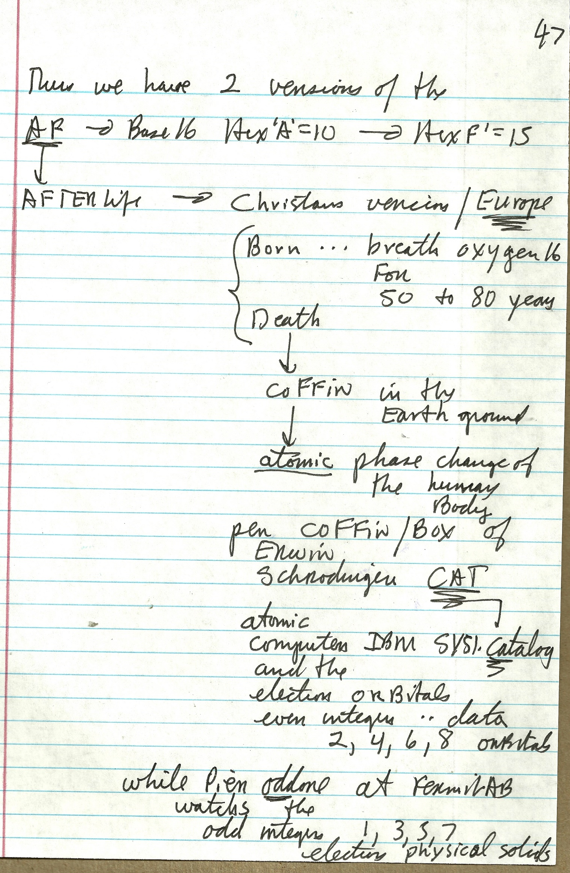 47
Thus we have 2 versions of the
AF → Base 16 Hex'A'=10 → Hex F'=15
AFTERlife → Christians version / Europe
Born ... breath oxygen 16
For
50 to 80 years
Death
COFFin in the
Earth ground
atomic phase change of
the human
Body
per COFFin / Box of
Erwin
Schrodinger CAT
atomic
computers IBM SYS1.Catalog
and the
electron orBitals
even integers .. data
2, 4, 6, 8 orBitals
while Pier oddone at FermiLAB
watchs the
odd integers 1, 3, 5, 7
electron physical solids